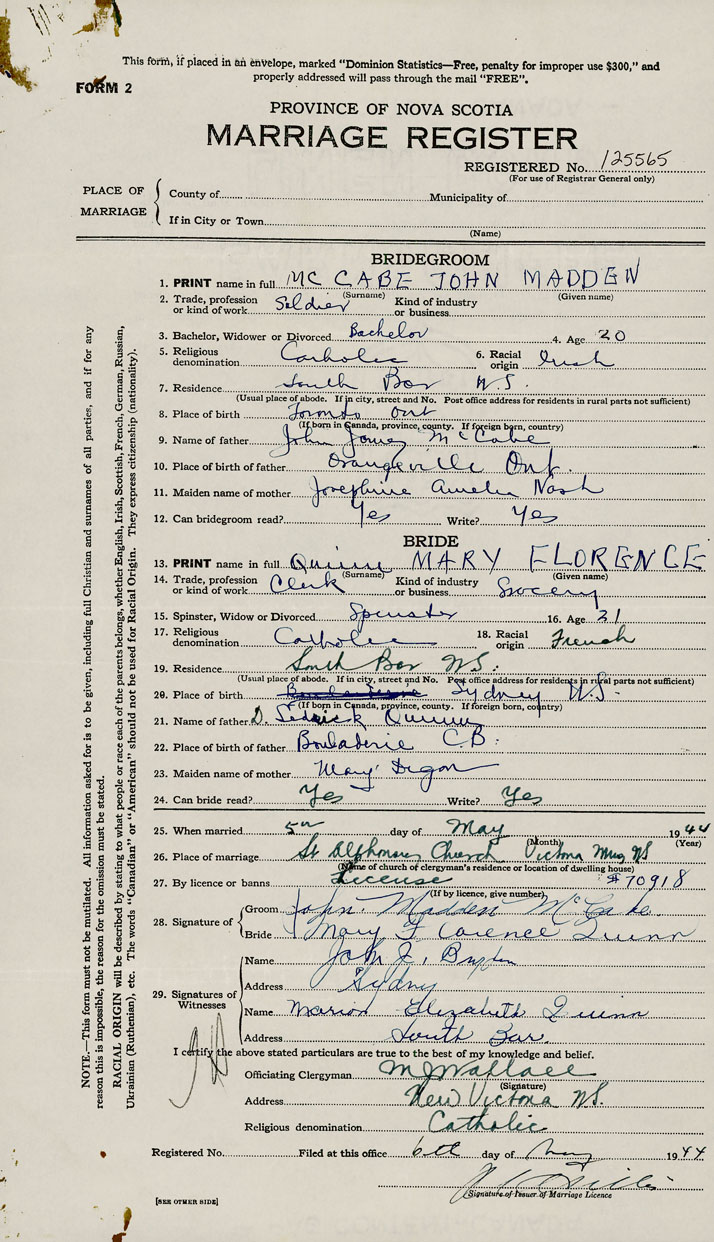 This form, if placed in an envelope, marked "Dominion Statistics—Free, penalty for improper use $300," and
properly addressed will pass through the mail "FREE".
FORM 2
PROVINCE OF NOVA SCOTIA
MARRIAGE REGISTER
REGISTERED No. 125565
(For use of Registrar General only)
PLACE OF MARRIAGE
County of Municipality of
If in City or Town
(Name)
BRIDEGROOM
1. PRINT name in full MC CABE JOHN MADDEN
(Surname) (Given name)
2. Trade, profession or kind of work Soldier Kind of industry or business
3. Bachelor, Widower or Divorced Bachelor 4. Age 20
5. Religious denomination Catholic 6. Racial origin Irish
7. Residence South Bar N.S.
(Usual place of abode. If in city, street and No. Post office address for residents in rural parts not sufficient)
8. Place of birth Toronto Ont
(If born in Canada, province, county. If foreign born, country)
9. Name of father John James McCabe
10. Place of birth of father Orangeville Ont.
11. Maiden name of mother Josephine Amelia Nash
12. Can bridegroom read? Yes Write? Yes
BRIDE
13. PRINT name in full Quinn MARY FLORENCE
(Surname) (Given name)
14. Trade, profession or kind of work Clerk Kind of industry or business Grocery
15. Spinster, Widow or Divorced Spinster 16. Age 21
17. Religious denomination Catholic 18. Racial origin French
19. Residence South Bar N.S.
(Usual place of abode. If in city, street and No. Post office address for residents in rural parts not sufficient)
20. Place of birth Sydney N.S.
(If born in Canada, province, county. If foreign born, country)
21. Name of father D. Quinn
22. Place of birth of father Boularderie C.B.
23. Maiden name of mother Mary
24. Can bride read? Yes Write? Yes
25. When married 5th day of May 1944
(Month) (Year)
26. Place of marriage St Alphonsus Church Victoria Mines NS
(Name of church of clergyman's residence or location of dwelling house)
27. By licence or banns License #70918
(If by licence, give number)
28. Signature of
Groom John Madden McCabe
Bride Mary Florence Quinn
29. Signatures of Witnesses
Name John J.
Address Sydney
Name Marion Elizabeth Quinn
Address South Bar.
I certify the above stated particulars are true to the best of my knowledge and belief.
Officiating Clergyman M J Wallace
(Signature)
Address New Victoria NS.
Religious denomination Catholic
Registered No. Filed at this office 6th day of May 1944
Signature of Issuer of Marriage Licence
[SEE OTHER SIDE]
NOTE.—This form must not be mutilated. All information asked for is to be given, including full Christian and surnames of all parties, and if for any
reason this is impossible, the reason for the omission must be stated.
RACIAL ORIGIN will be described by stating to what people or race each of the parents belongs, whether English, Irish, Scottish, French, German, Russian,
Ukrainian (Ruthenian), etc. The words "Canadian" or "American" should not be used for Racial Origin. They express citizenship (nationality).